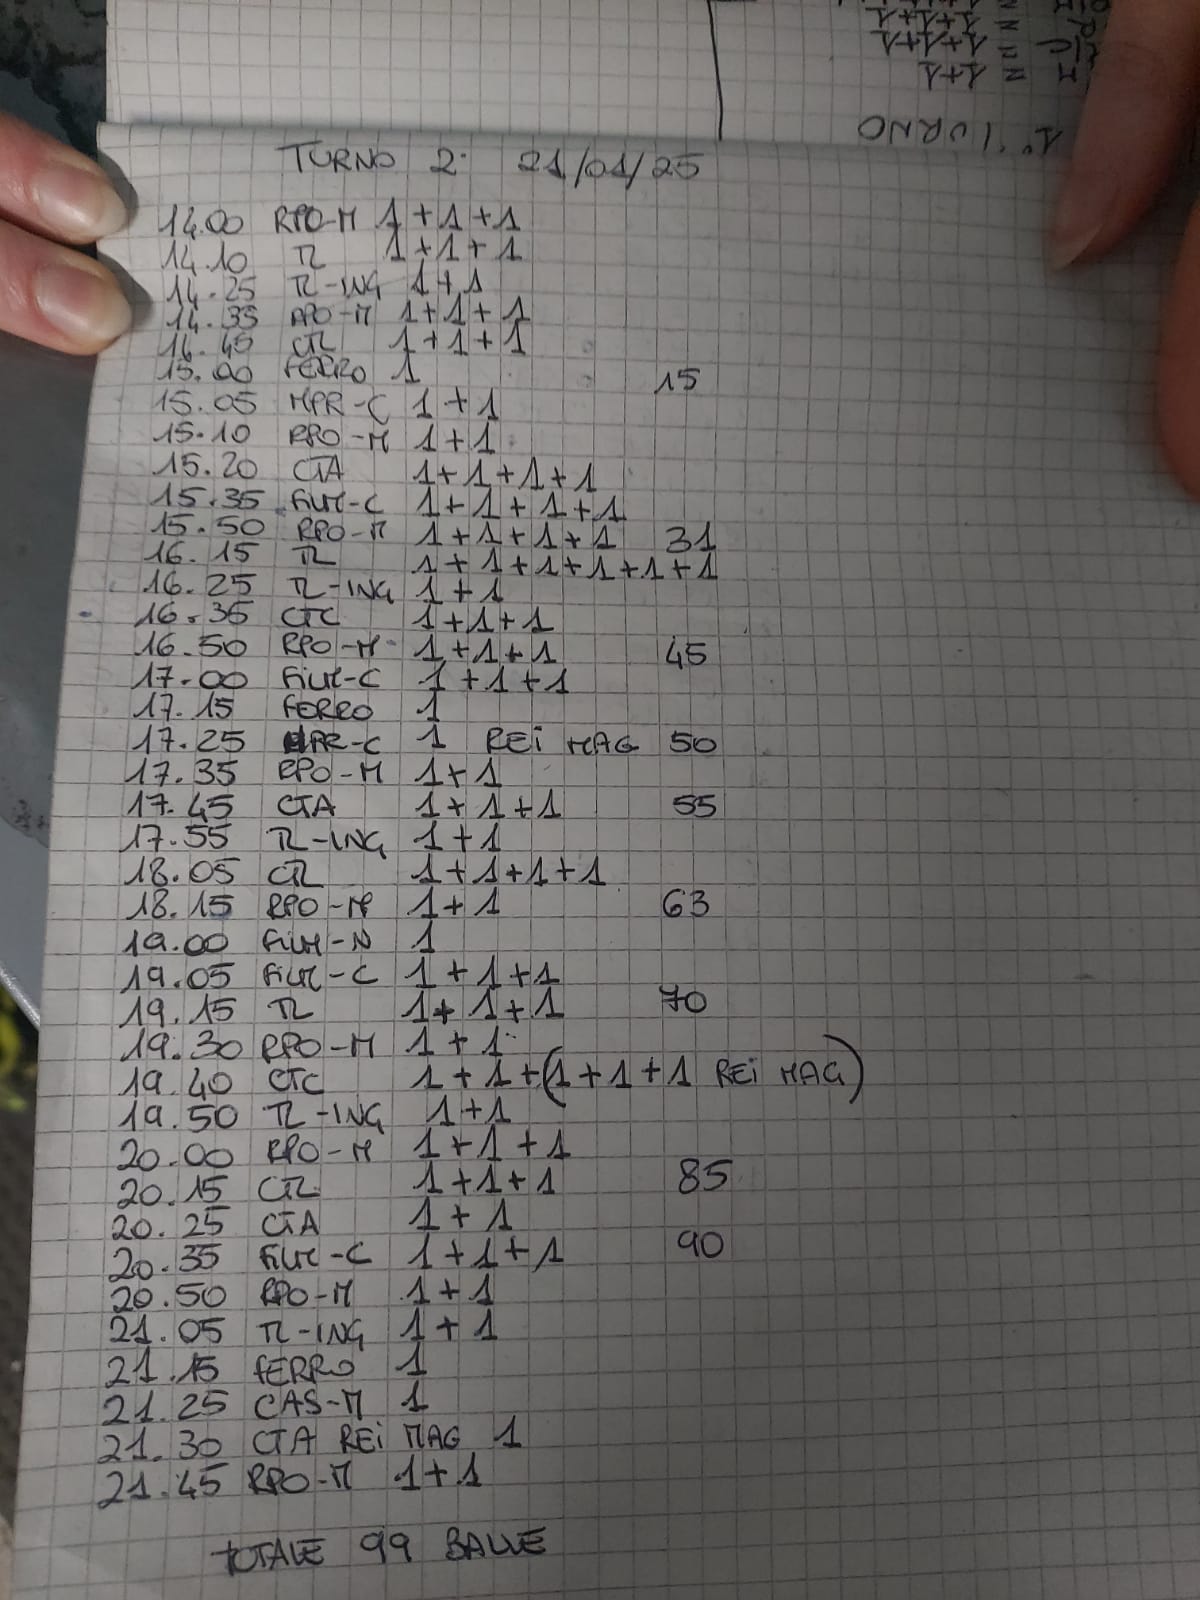 1° TURNO
1+1
1+1+1
1+1+1
TURNO 2° 21/01/25
14.00 RPO-M 1+1+1
14.10 TL 1+1+1
14.25 TL-ING 1+1
14.35 RPO-M 1+1+1
14.45 CTL 1+1+1
15.00 FERRO 1 15
15.05 MPR-C 1+1
15.10 RPO-M 1+1
15.20 CTA 1+1+1+1
15.35 FILM-C 1+1+1+1
15.50 RPO-M 1+1+1+1 31
16.15 TL 1+1+1+1+1+1
16.25 TL-ING 1+1
16.35 CTC 1+1+1
16.50 RPO-M 1+1+1 45
17.00 FILM-C 1+1+1
17.15 FERRO 1
17.25 MPR-C 1 REI MAG 50
17.35 RPO-M 1+1
17.45 CTA 1+1+1 55
17.55 TL-ING 1+1
18.05 CTL 1+1+1+1
18.15 RPO-M 1+1 63
19.00 FILM-N 1
19.05 FILM-C 1+1+1
19.15 TL 1+1+1 70
19.30 RPO-M 1+1
19.40 CTC 1+1+(1+1+1 REI MAG)
19.50 TL-ING 1+1
20.00 RPO-M 1+1+1
20.15 CTL 1+1+1 85
20.25 CTA 1+1
20.35 FILM-C 1+1+1 90
20.50 RPO-M 1+1
21.05 TL-ING 1+1
21.15 FERRO 1
21.25 CAS-M 1
21.30 CTA REI MAG 1
21.45 RPO-M 1+1
TOTALE 99 BALLE